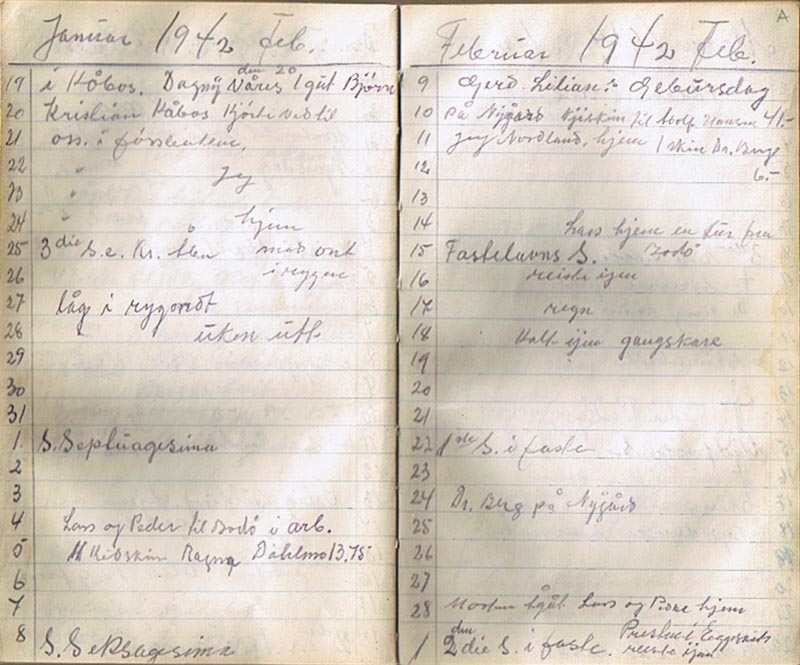 Januar 1942 Feb.
19 i Kåbos. Dagny Våres 1 gut Bjørn
den 20
20 Kristian Kåbos kjørte ved til
21 oss. i
22 " Jeg
23 "
24 " hjem
25 3die S. e. Kr. åbn med ont
26 i ryggen
27 låg i rygondt
28 uken utt
29
30
31
1 S. Septuagesima
2
3
4 Lars og Peder til Bodø i arb.
5 Ragna Dahlmo 13,75
6
7
8 S. Seksagesima
A
Februar 1942 Feb.
9 Gerd. Lilian's Gebursdag
10 på Nygård til Adolf Hansen 41.-
11 Jeg Nordland, hjem 1 skin Dr. Berg
12 6.-
13
14 Lars hjem en tur fra
15 Fastelavns S. Bodø
16 reiste igen
17 regn
18 Kalt ijen gangskare
19
20
21
22 1ste S. i faste
23
24 Dr. Berg på Nygård
25
26
27
28 Lars og hjem
1 2den die S. i faste. reiste ijen